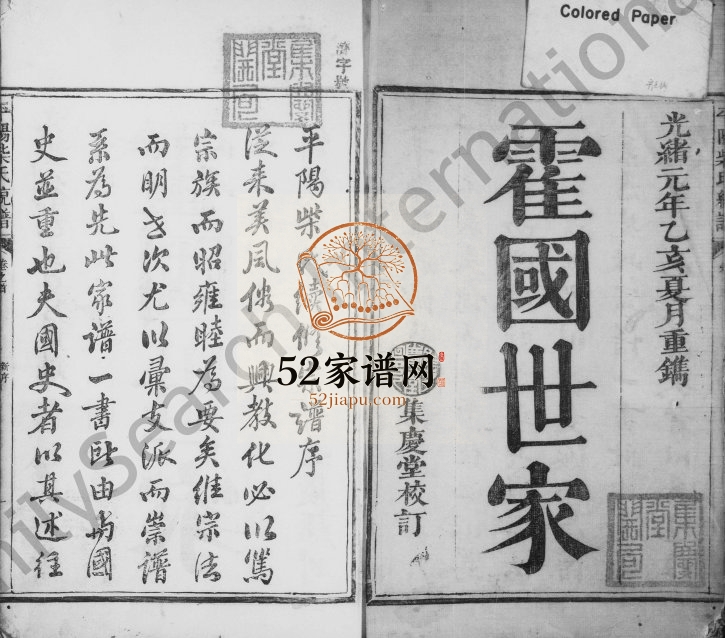 Colored Paper
光緒元年乙亥夏月重鐫
霍國世家
集慶堂校訂
平陽柴氏續修宗譜序
從來美風俗而興教化必以篤
宗族而昭雍睦為要矣維宗法
而明世次尤以彙支派而崇譜
系為先此家譜一書所由與國
史並重也夫國史者以其述往
52家谱网
52jiapu.com